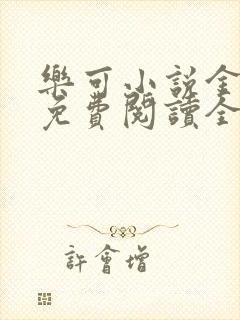 樂可小說全
免費閱讀全
許會增